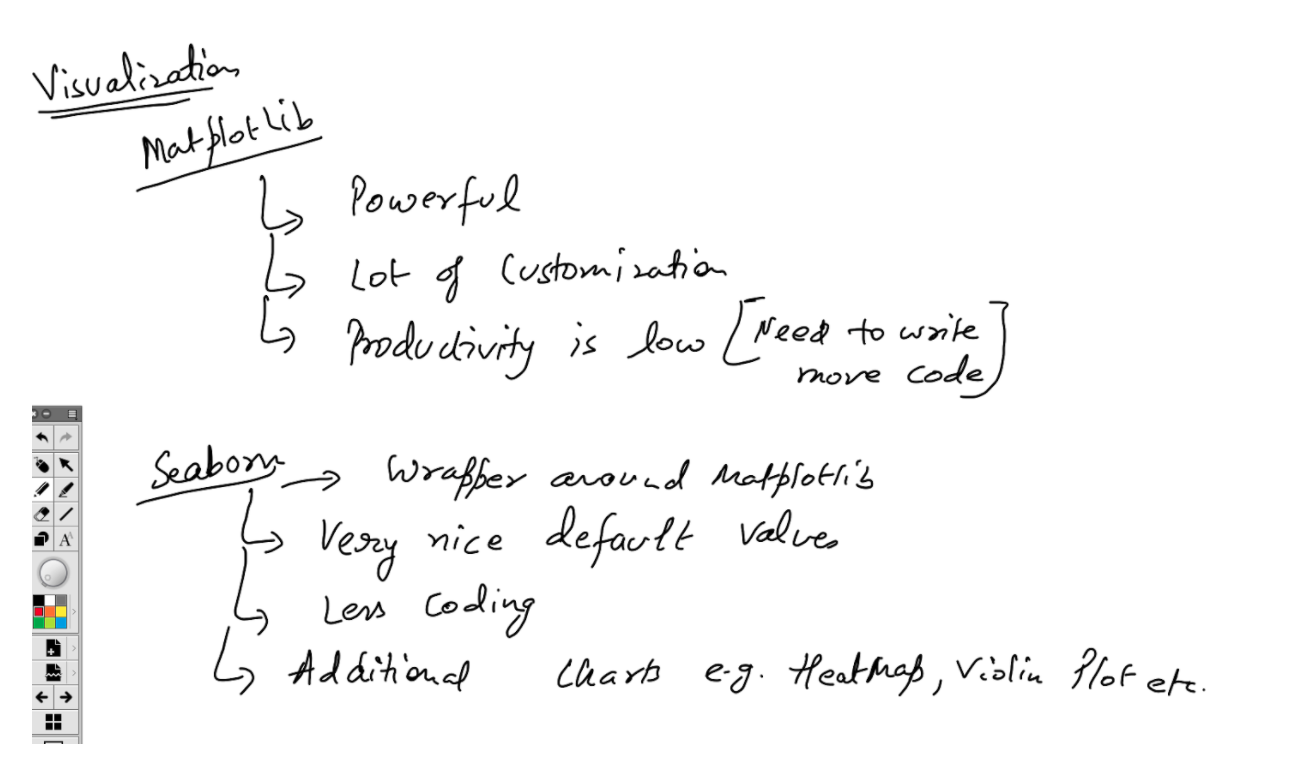 Visualization
Matplotlib
Powerful
Lot of Customization
Productivity is low [Need to write
more code]
Seaborn → Wrapper around Matplotlib
Very nice default values
Less Coding
Additional Charts e.g. HeatMap, Violin Plot etc.
A